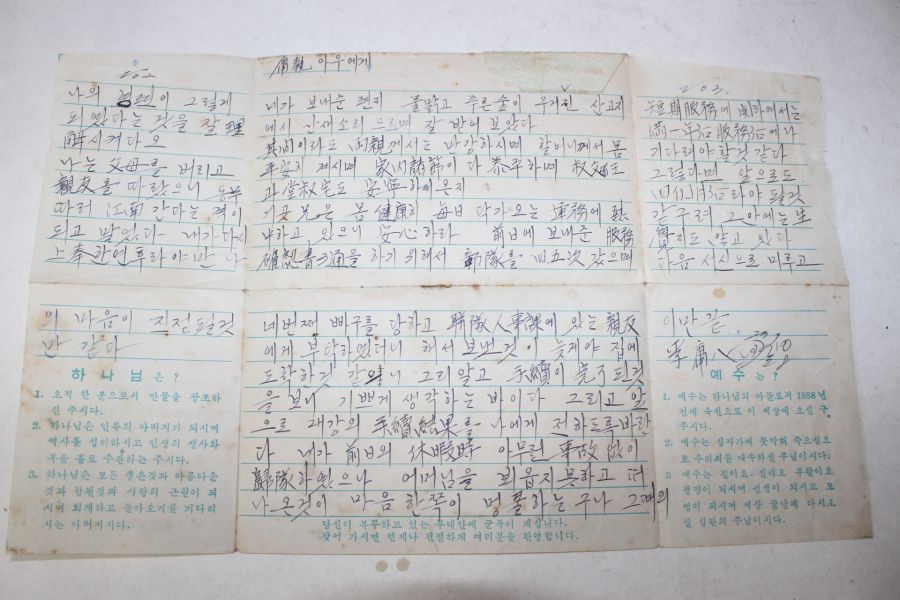 아우에게
네가 보내준 편지 물맑고 푸른술이 우거진 산고지
에서 산새소리 드르며 잘 받어 보았다
其間이라도 兩親께서는 만강하시며 할머니께서 몸
平安히 계시며 家內諸節이 다 泰平하며 叔父主
과 堂叔主도 安寧하신지
이곳 兄은 몸 健康히 每日 닥가오는 軍務에
하고 있으니 安心하라 前日에 보내준 服務
確認書三通을 하기 위해서 部隊를 四五次 갔으며
네번째 빠꾸를 당하고 聯隊人事課에 있는 親友
에게 부탁하였더니 해서 보낸것이 늦게야 집에
도착하것 같으니 그리알고 手續이 完了된것
을 보니 기쁘게 생각하는 바이다 그리고 앞
으로 대강의 手續結果를 나에게 전하도록 바란
다 내가 前日의 休暇時 아무런 事故 없이
歸隊하였으나 어머님을 뵈옵지못하고 떠
나온것이 마음 한쪽이 멍풀하는구나 그때의
당신이 복무하고 있는 부대안에 군목이 계십니다.
찾어 가시면 언제나 친절하게 여러분을 환영합니다.
202
나의 형편이 그렇게
되였다는 것을 잘 理
解시켜다오
나는 父母를 버리고
親友를 따랐으니 동무
따러 江南간다는 격이
되고 말었다 내가 다시
上奉한연후라야만 나
의 마음이 진정될것
만 같다
하 나 님 은 ?
1. 오직 한 분으로서 만물을 창조하
신 주시다.
2. 하나님은 인류의 아버지가 되시며
역사를 섭리하시고 인생의 생사화
복을 홀로 주관하시는 주시다.
3. 하나님은 모든 좋은것과 아름다운
것과 참된것과 사랑의 근원이 되
시며 회개하고 돌아오기를 기다리
시는 아버지시다.
203.
短期服務에 關해서는
服務하고
기다려야 할것 같다
그렇다면 앞으로도
라야 될것
같구려 그안에는 生
覺지도 않고 있다
다음 서신으로 미루고
이만 끝
예 수 는 ?
1. 예수는 하나님의 아들로서 1958년
전에 육신으로 이 세상에 오신 구
주시다.
2. 예수는 십자가에 못박혀 죽으심으
로 우리죄를 대속하신 주님이시다.
3 예수는 길이요. 진리요 부활이요
생명이 되시며 선생이 되시고 또
벗이 되시며 세상 끝날에 다시오
실 심판의 주님이시다.